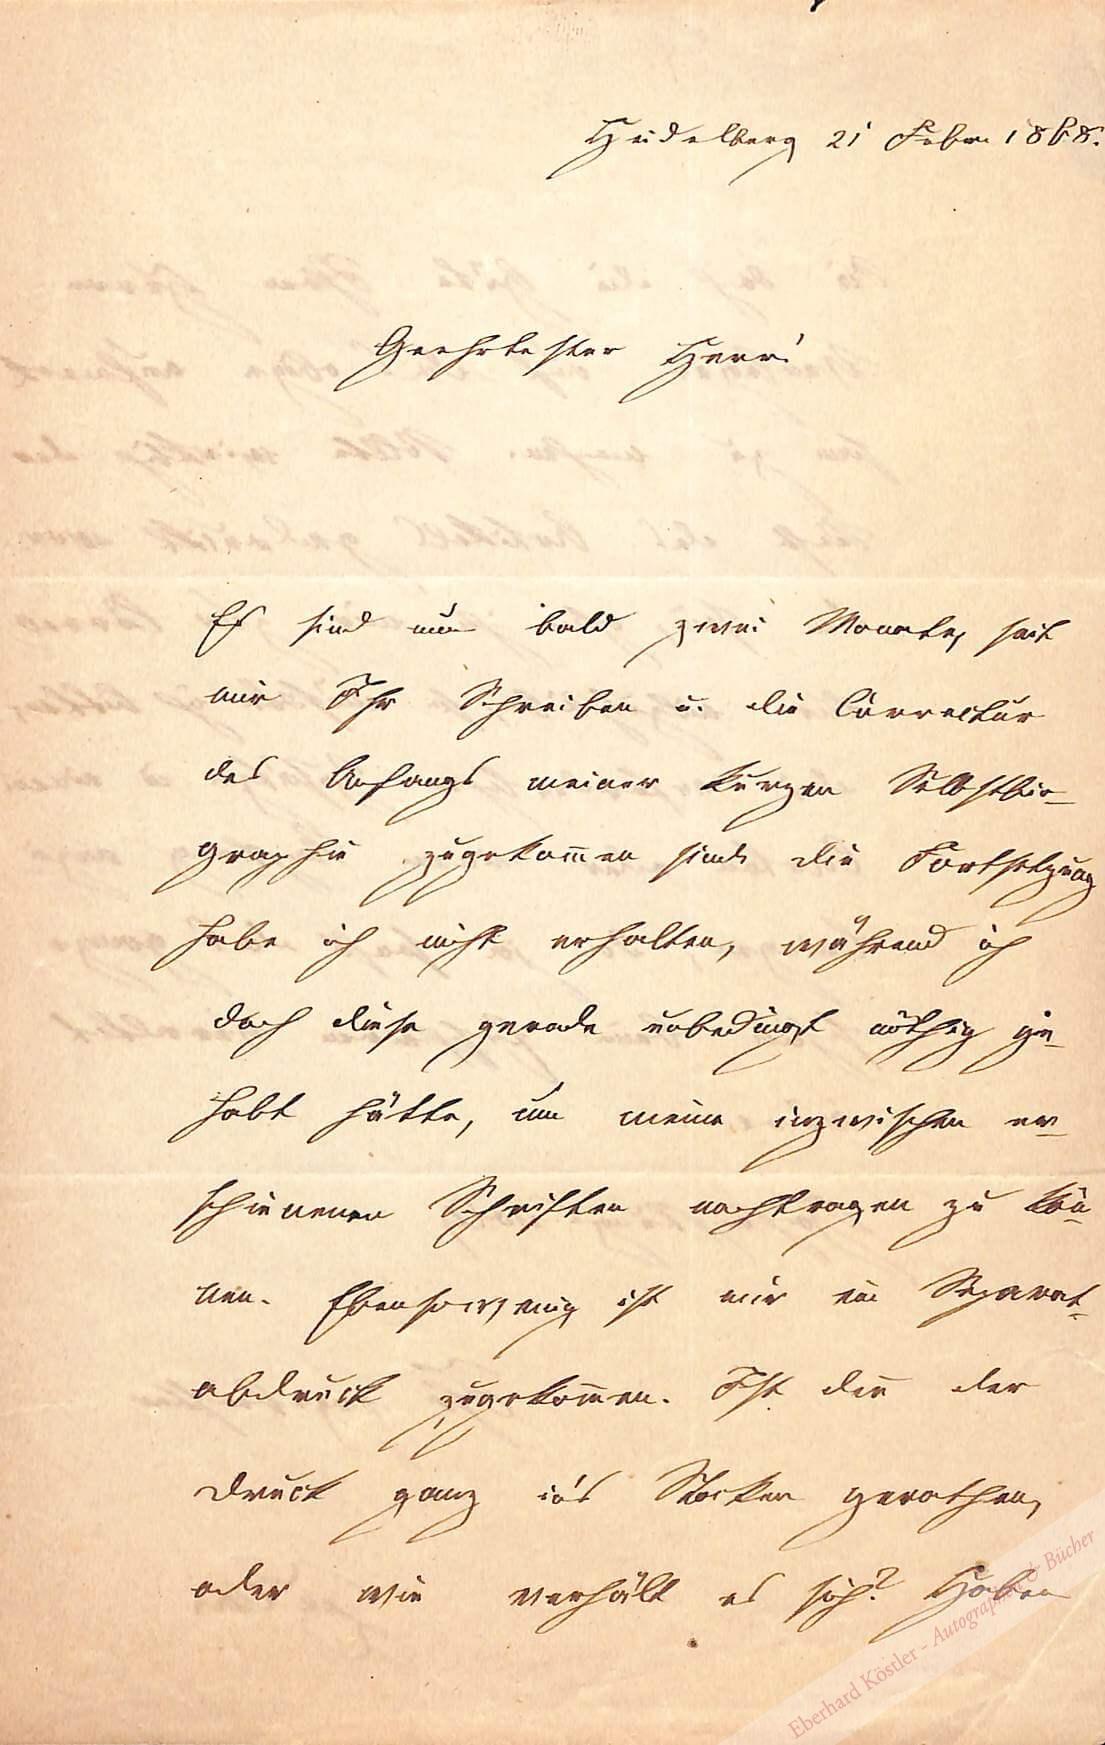 Heidelberg 21 Febr. 1868.
Geehrtester Herr!
Es sind nun bald zwei Monate, seit
mir Ihr Schreiben u. die Correctur
des Anfangs meiner kurzen Selbstbio-
graphie zugekom̅en sind; die Fortsetzung
habe ich nicht erhalten, während ich
doch diese gerade unbedingt nöthig ge-
habt hätte, um meine inzwischen er-
schienenen Schriften nachtragen zu kön-
nen. Ebensowenig ist mir ein Separat-
abdruck zugekom̅en. Ist den̅ der
Druck ganz in's Stocken gerathen,
oder wie verhält es sich? Haben
Eberhard Köstler - Autographen & Bücher